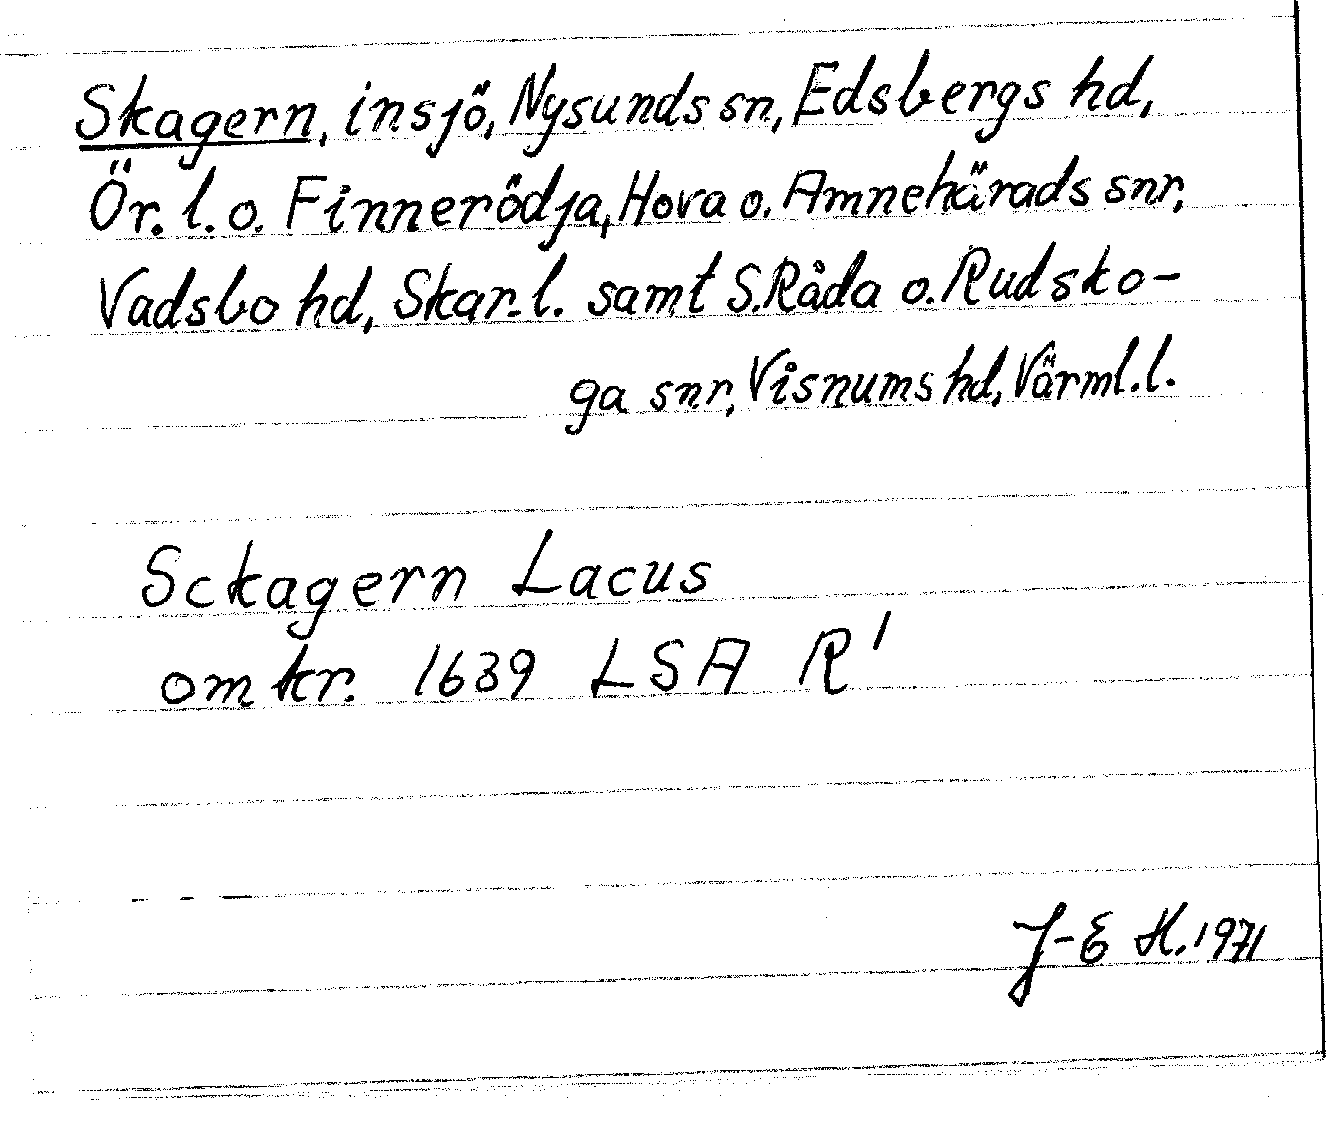 Skagern, insjö, Nysunds sn, Edsbergs hd,
Ör. l. o. Finnerödja, Hova o. Amnehärads snr,
Vadsbo hd, Skar. l. samt S. Råda o. Rudsko-
ga snr, Visnums hd, Värml. l.
Sckagern Lacus
omkr. 1639 LSA R¹
J-E H. 1971